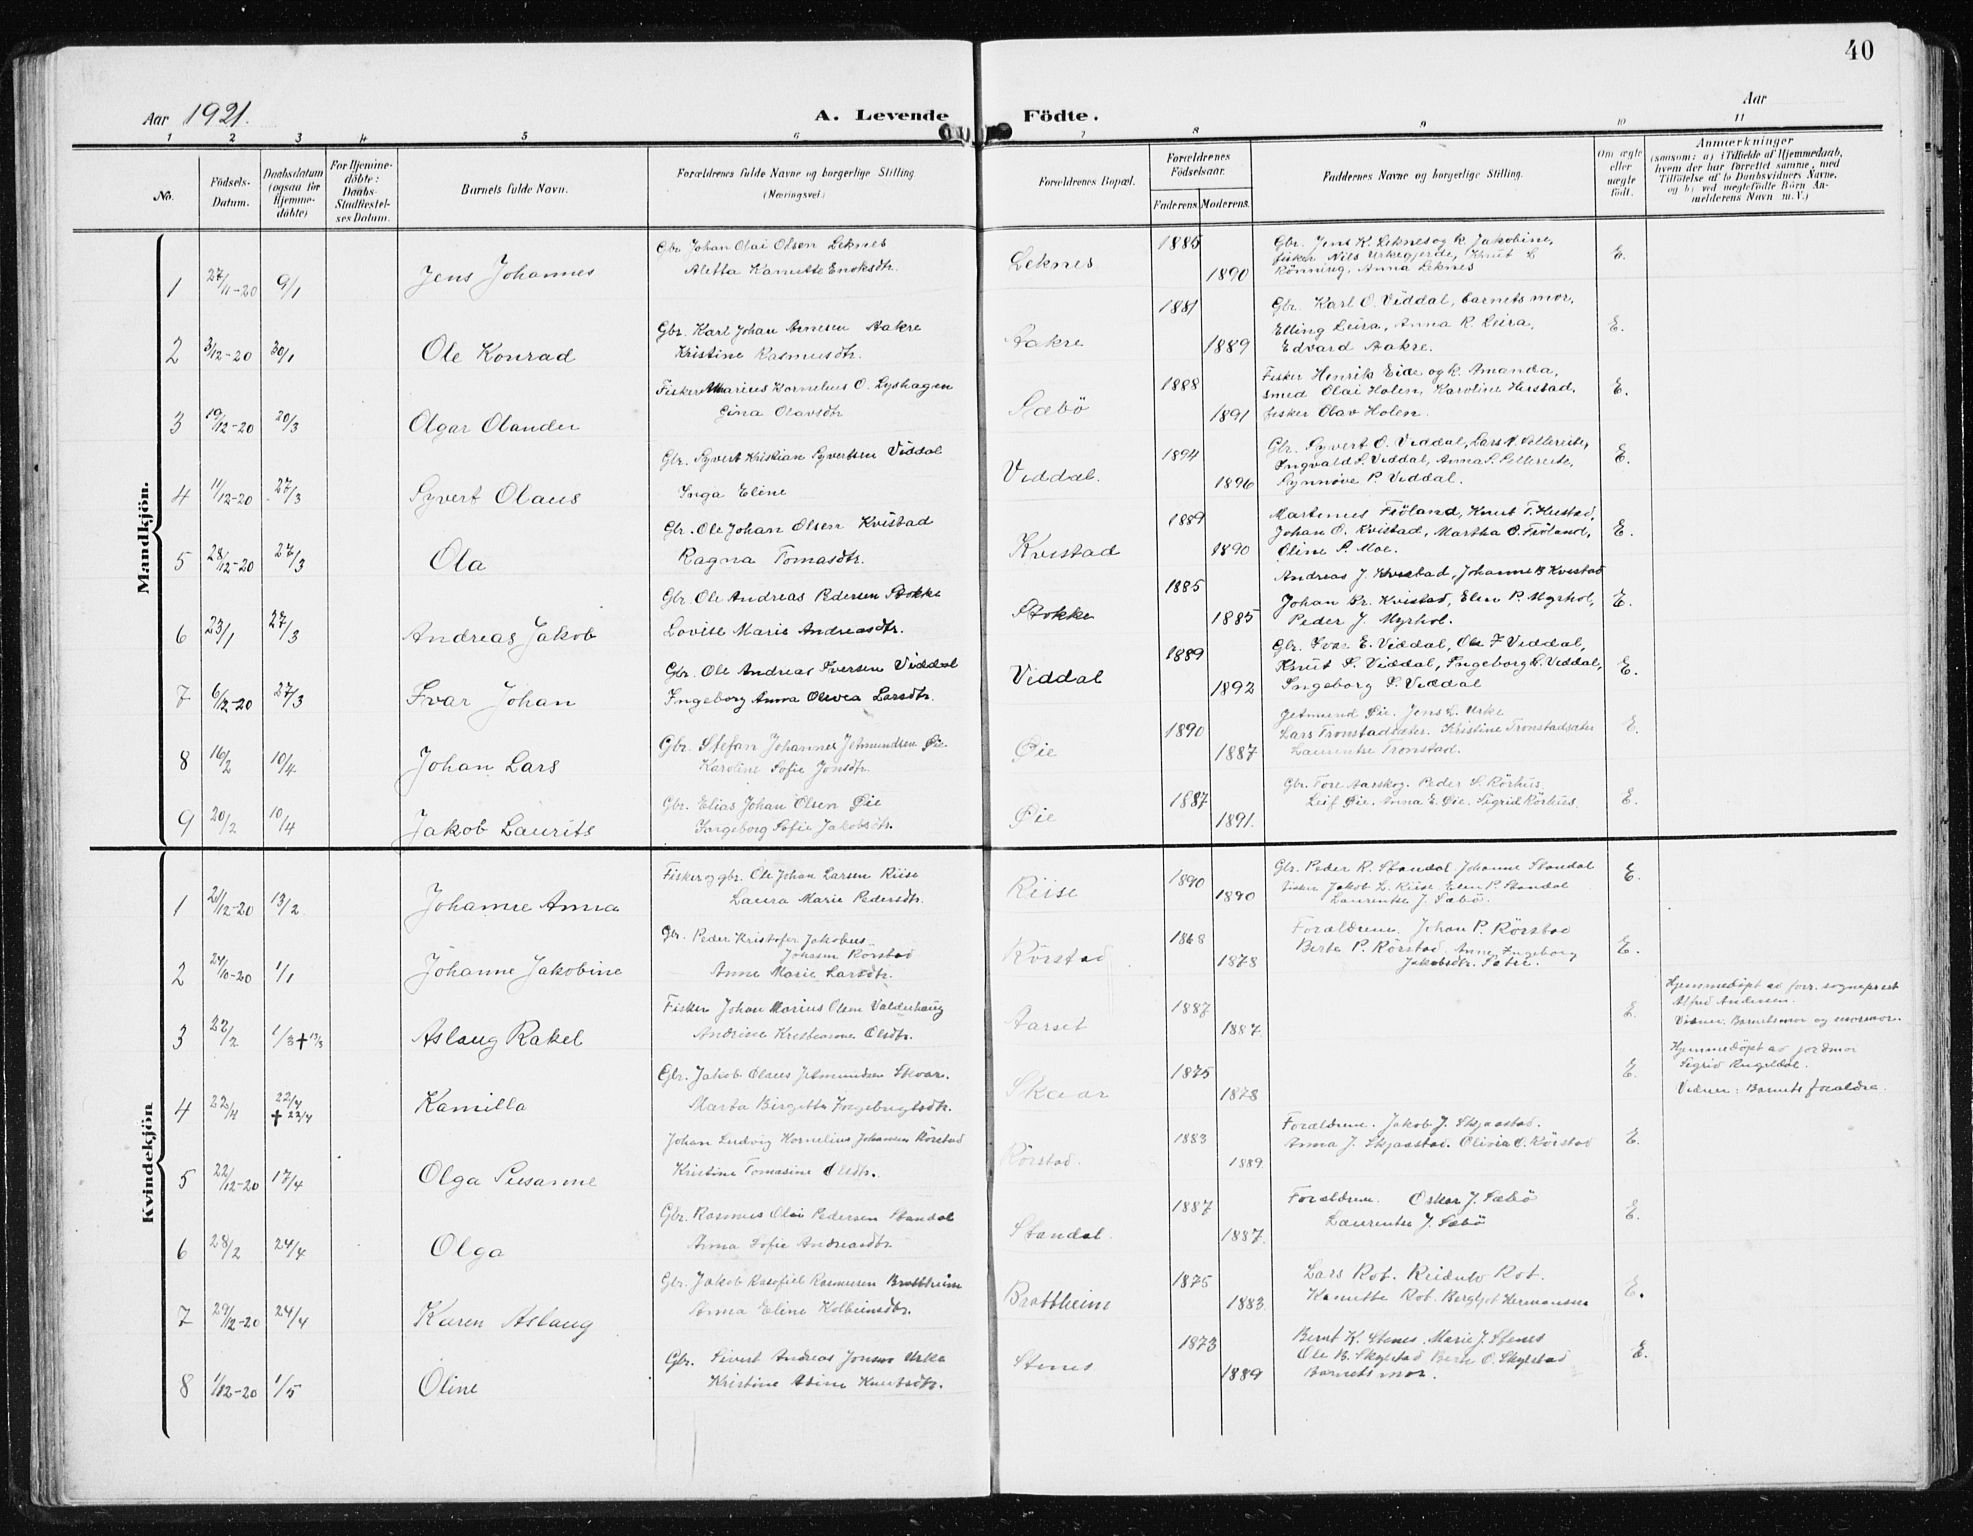 40
Aar 1921.
A. Levende Födte.
Aar
1 2 3 4 5 6 7 8 9 10 11
No.
Födsels-Datum.
Daabsdatum (ogsaa for Hjemme-döbte)
For Hjemme-döbte: Daabs-Stadfæstel-ses Datum.
Barnets fulde Navn.
Forældrenes fulde Navne og borgerlige Stilling (Næringsvei)
Forældrenes Bopæl.
Forældrenes Födselsaar.
Faderens. Moderens.
Faddernes Navne og borgerlige Stilling.
Om ægte eller uægte födt.
Anmærkninger
(saasom: a) i Tilfælde af Hjemmedaab, hvem der har forrettet samme, med Tilföielse af to Daabsvidners Navne, og b) ved uægtefödte Börn An-melderens Navn m. V.)
Mandkjön.
1 27/11-20 9/1 Jens Johannes
Gbr. Johan Olai Olsen Leknes
Aletta Kanutte Enoksdtr.
Leknes 1885 1890
Gbr. Jens K. Leknes og k. Jakobine,
fisker Nils Urkegjerde, Knut L
Rönning, Anna Leknes
E.
2 3/12-20 30/1 Ole Konrad
Gbr. Karl Johan Arnesen Aakre
Kristine Rasmusdtr.
Aakre 1881 1889
Gbr. Karl O. Viddal, barnets mor,
Elling Leira, Anna R. Leira,
Edvard Aakre.
E.
3 19/12-20 20/3 Olgar Olander
Fisker Marius Kornelius O. Lyshagen
Gina Olavsdtr
Sæbö 1888 1891
Fisker Henrik Eide og k. Amanda,
smed Olai Holen, Karoline Hustad,
fisker Olav Holen.
E.
4 11/12-20 27/3 Syvert Olaus
Gbr. Syvert Kristian Syvertsen Viddal
Inga Eline
Viddal. 1894 1896
Gbr. Syvert O. Viddal, Lars N. Sollereite,
Ingvald S. Viddal, Anna S. Sollereite,
Synnöve P. Viddal.
E.
5 28/12-20 27/3 Ola
Gbr. Ole Johan Olsen Kvistad
Ragna Tomasdtr.
Kvistad 1889 1890
Martinus Fröland, Knut T. Hustad,
Johan O. Kvistad, Martha O. Fröland,
Oline P. Moe.
E.
6 23/1 27/3 Andreas Jakob
Gbr. Ole Andreas Pedersen Stokke
Lovise Marie Andreasdtr.
Stokke 1885 1885
Andreas J. Kvistad, Johanne B Kvistad
Johan Br. Kvistad, Elen P. Myrhol,
Peder J. Myrhol.
E.
7 6/12-20 27/3 Ivar Johan
Gbr. Ole Andreas Iversen Viddal
Ingeborg Anna Olivea Larsdtr.
Viddal 1889 1892
Gbr. Ivar E. Viddal, Ole I Viddal,
Knut S. Viddal, Ingeborg K. Viddal,
Ingeborg P. Viddal
E.
8 16/2 10/4 Johan Lars
Gbr. Stefan Johannes Jetmundsen Øie
Karoline Sofie Jonsdtr.
Øie 1890 1887
Jetmund Øie. Jens L. Urke
Lars Tronstadsæter. Kristine Tronstadsæter
Laurentse Tronstad.
E.
9 20/2 10/4 Jakob Laurits
Gbr. Elias Johan Olsen Øie
Ingeborg Sofie Jakobsdtr.
Øie 1887 1891.
Gbr. Tore Aarskog. Peder S. Rörhus.
Leif Øie. Anna E. Øie. Sigrid Rörhus.
E.
Kvindekjön
1 21/12-20 13/2. Johanne Anna
Fisker og gbr. Ole Johan Larsen Riise
Laura Marie Pedersdtr.
Riise 1890 1890
Gbr. Peder R. Standal Johanne Standal
fisker Jakob L. Riise Elen P. Standal
Laurentse J. Sæbö.
E.
2 24/10-20 1/1 Johanne Jakobine
Gbr. Peder Kristofer Jakobus
Johssen Rörstad
Anne Marie Larsdtr.
Rörstad 1868 1878
Forældrene. Johan P. Rörstad
Berte P. Rörstad. Anne Ingeborg
Jakobsdtr. Sætre.
E.
3 22/2 1/3 ✝ 17/3 Aslaug Rakel
Fisker Johan Marius Olsen Valderhaug
Andrine Kristianna Olsdtr.
Aarset 1887 1887.
E
Hjemmedöpt av forr. sogneprest
Alfred Andersen.
Vidner: Barnets mor og mormor.
4 22/4 22/4 ✝ 22/4 Kamilla
Gbr. Jakob Olaus Jetmundsen Skaar.
Marta Birgitte Ingebrigtsdtr.
Skaar 1875 1878
E.
Hjemmedöpt av jordmor
Sigrid Engeldal.
Vidner: Barnets forældre.
5 22/12-20 17/4 Olga Susanne
Johan Ludvig Kornelius Johansen Rörstad
Kristine Tomasine Olsdtr.
Rörstad. 1883 1889
Forældrene. Jakob J. Skjaastad.
Anna J. Skjaastad. Olivia O. Rörstad
E.
6 28/2 24/4 Olga
Gbr. Rasmus Olai Pedersen Standal
Anna Sofie Andreasdtr.
Standal. 1887 1887.
Forældrene. Oskar J. Sæbö
Laurentse J. Sæbö
E.
7 29/12-20 24/4 Karen Aslaug
Gbr. Jakob Rasmus Brattheim
Anna Eline Kolbeinsdtr.
Brattheim 1875 1883
Lars Rot. Reidulv Rot.
Kanutte Rot. Bergljot Hermansen
E.
8 1/12-20 1/5 Oline
Gbr. Sivert Andreas Jonsen Urke
Kristine Knutsdtr.
Stenes 1873 1889
Bernt K. Stenes. Marie J. Stenes
Ole B. Skylstad Berte O. Skylstad
Barnets mor.
E.